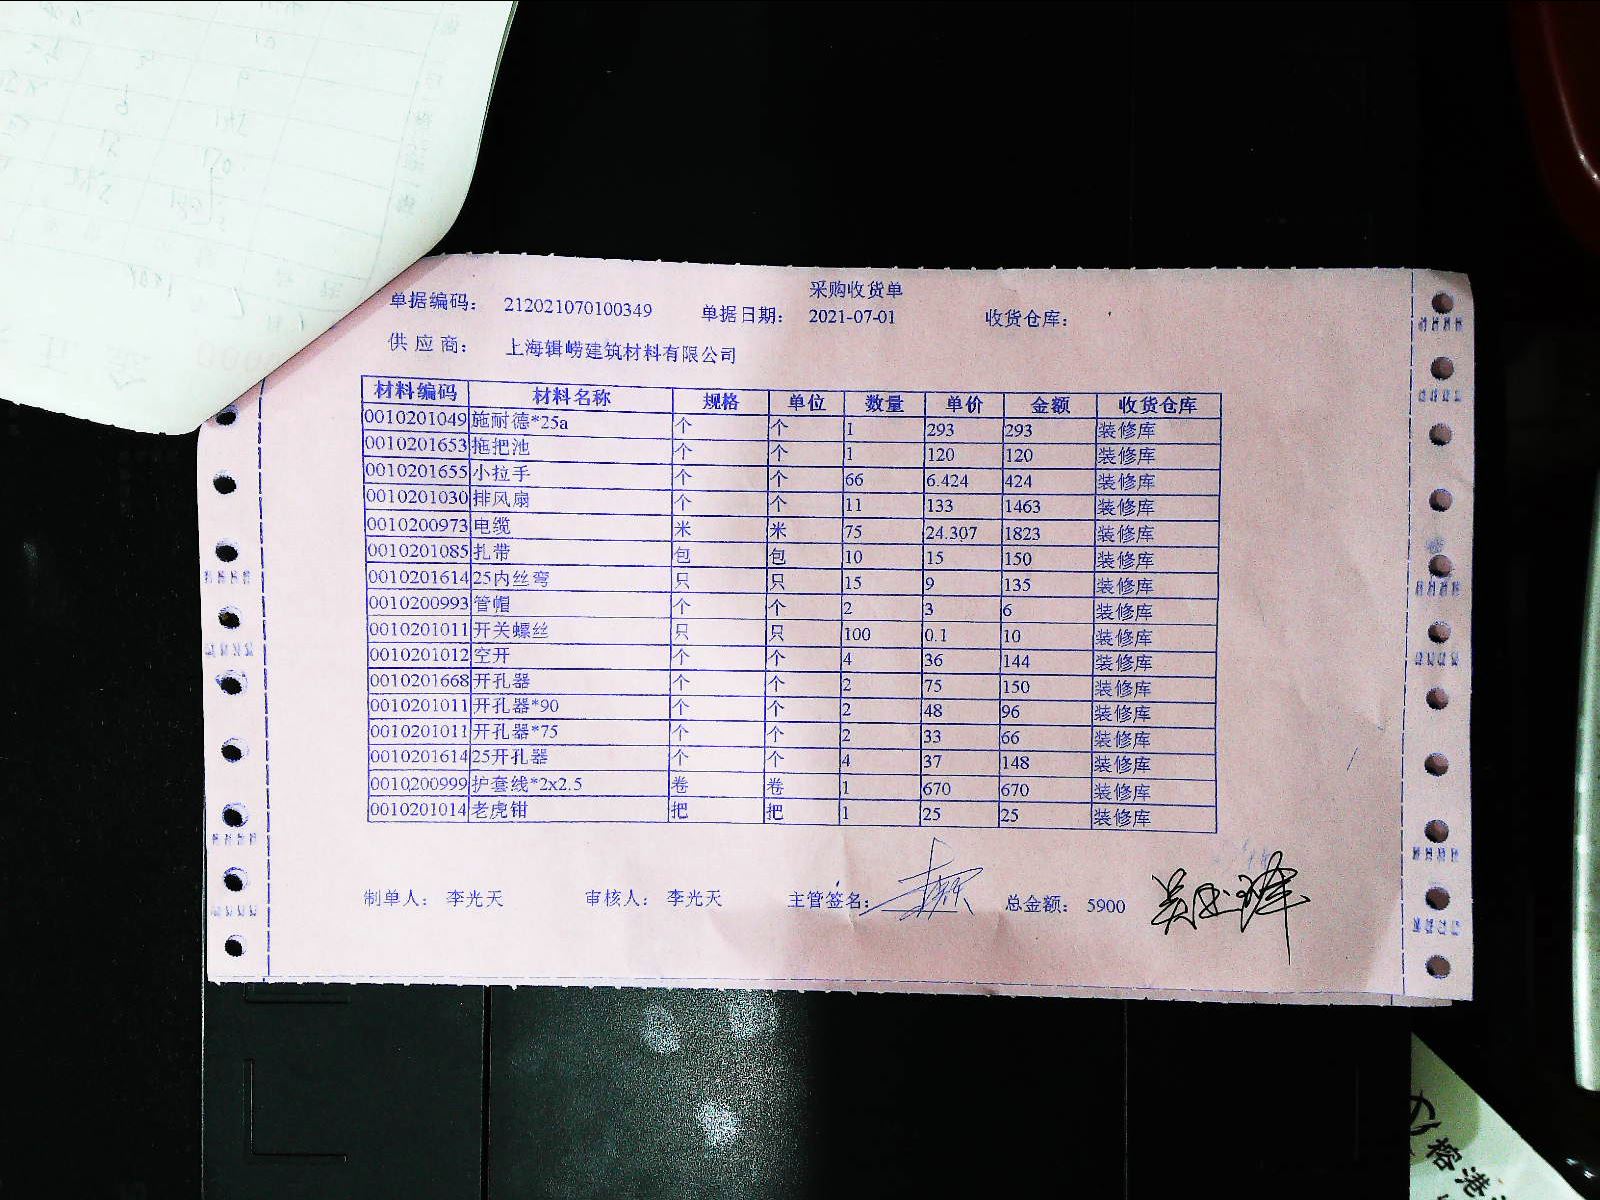 采购收货单
单据编码： 212021070100349 单据日期： 2021-07-01 收货仓库：
供应商： 上海辑崂建筑材料有限公司
材料编码 材料名称 规格 单位 数量 单价 金额 收货仓库
0010201049 施耐德*25a 个 个 1 293 293 装修库
0010201653 拖把池 个 个 1 120 120 装修库
0010201655 小拉手 个 个 66 6.424 424 装修库
0010201030 排风扇 个 个 11 133 1463 装修库
0010200973 电缆 米 米 75 24.307 1823 装修库
0010201085 扎带 包 包 10 15 150 装修库
0010201614 25内丝弯 只 只 15 9 135 装修库
0010200993 管帽 个 个 2 3 6 装修库
0010201011 开关螺丝 只 只 100 0.1 10 装修库
0010201012 空开 个 个 4 36 144 装修库
0010201668 开孔器 个 个 2 75 150 装修库
0010201011 开孔器*90 个 个 2 48 96 装修库
0010201011 开孔器*75 个 个 2 33 66 装修库
0010201614 25开孔器 个 个 4 37 148 装修库
0010200999 护套线*2x2.5 卷 卷 1 670 670 装修库
0010201014 老虎钳 把 把 1 25 25 装修库
制单人： 李光天 审核人： 李光天 主管签名： 总金额： 5900
榕港